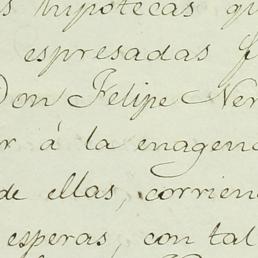 s hipotecas qu
espresadas f
Don Felipe Ner
r á la enagena
de ellas, corrien
esperas, con tal